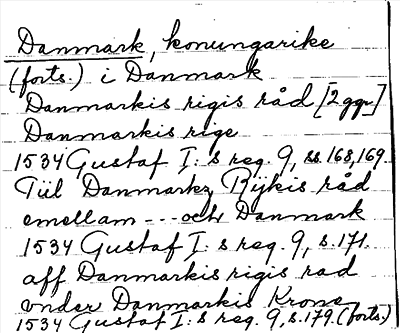 Danmark, konungarike
(forts.) i Danmark
Danmarkis rigis råd [2 ggr]
Danmarkis rige
1534 Gustaf I:s reg. 9, ss. 168, 169.
Till Danmarkz Rijkis råd
emellam --- och Danmark
1534 Gustaf I:s reg. 9, s. 171.
aff Danmarkis rigis rad
vnder Danmarkis Krone
1534 Gustaf I:s reg. 9, s. 179. (forts.)